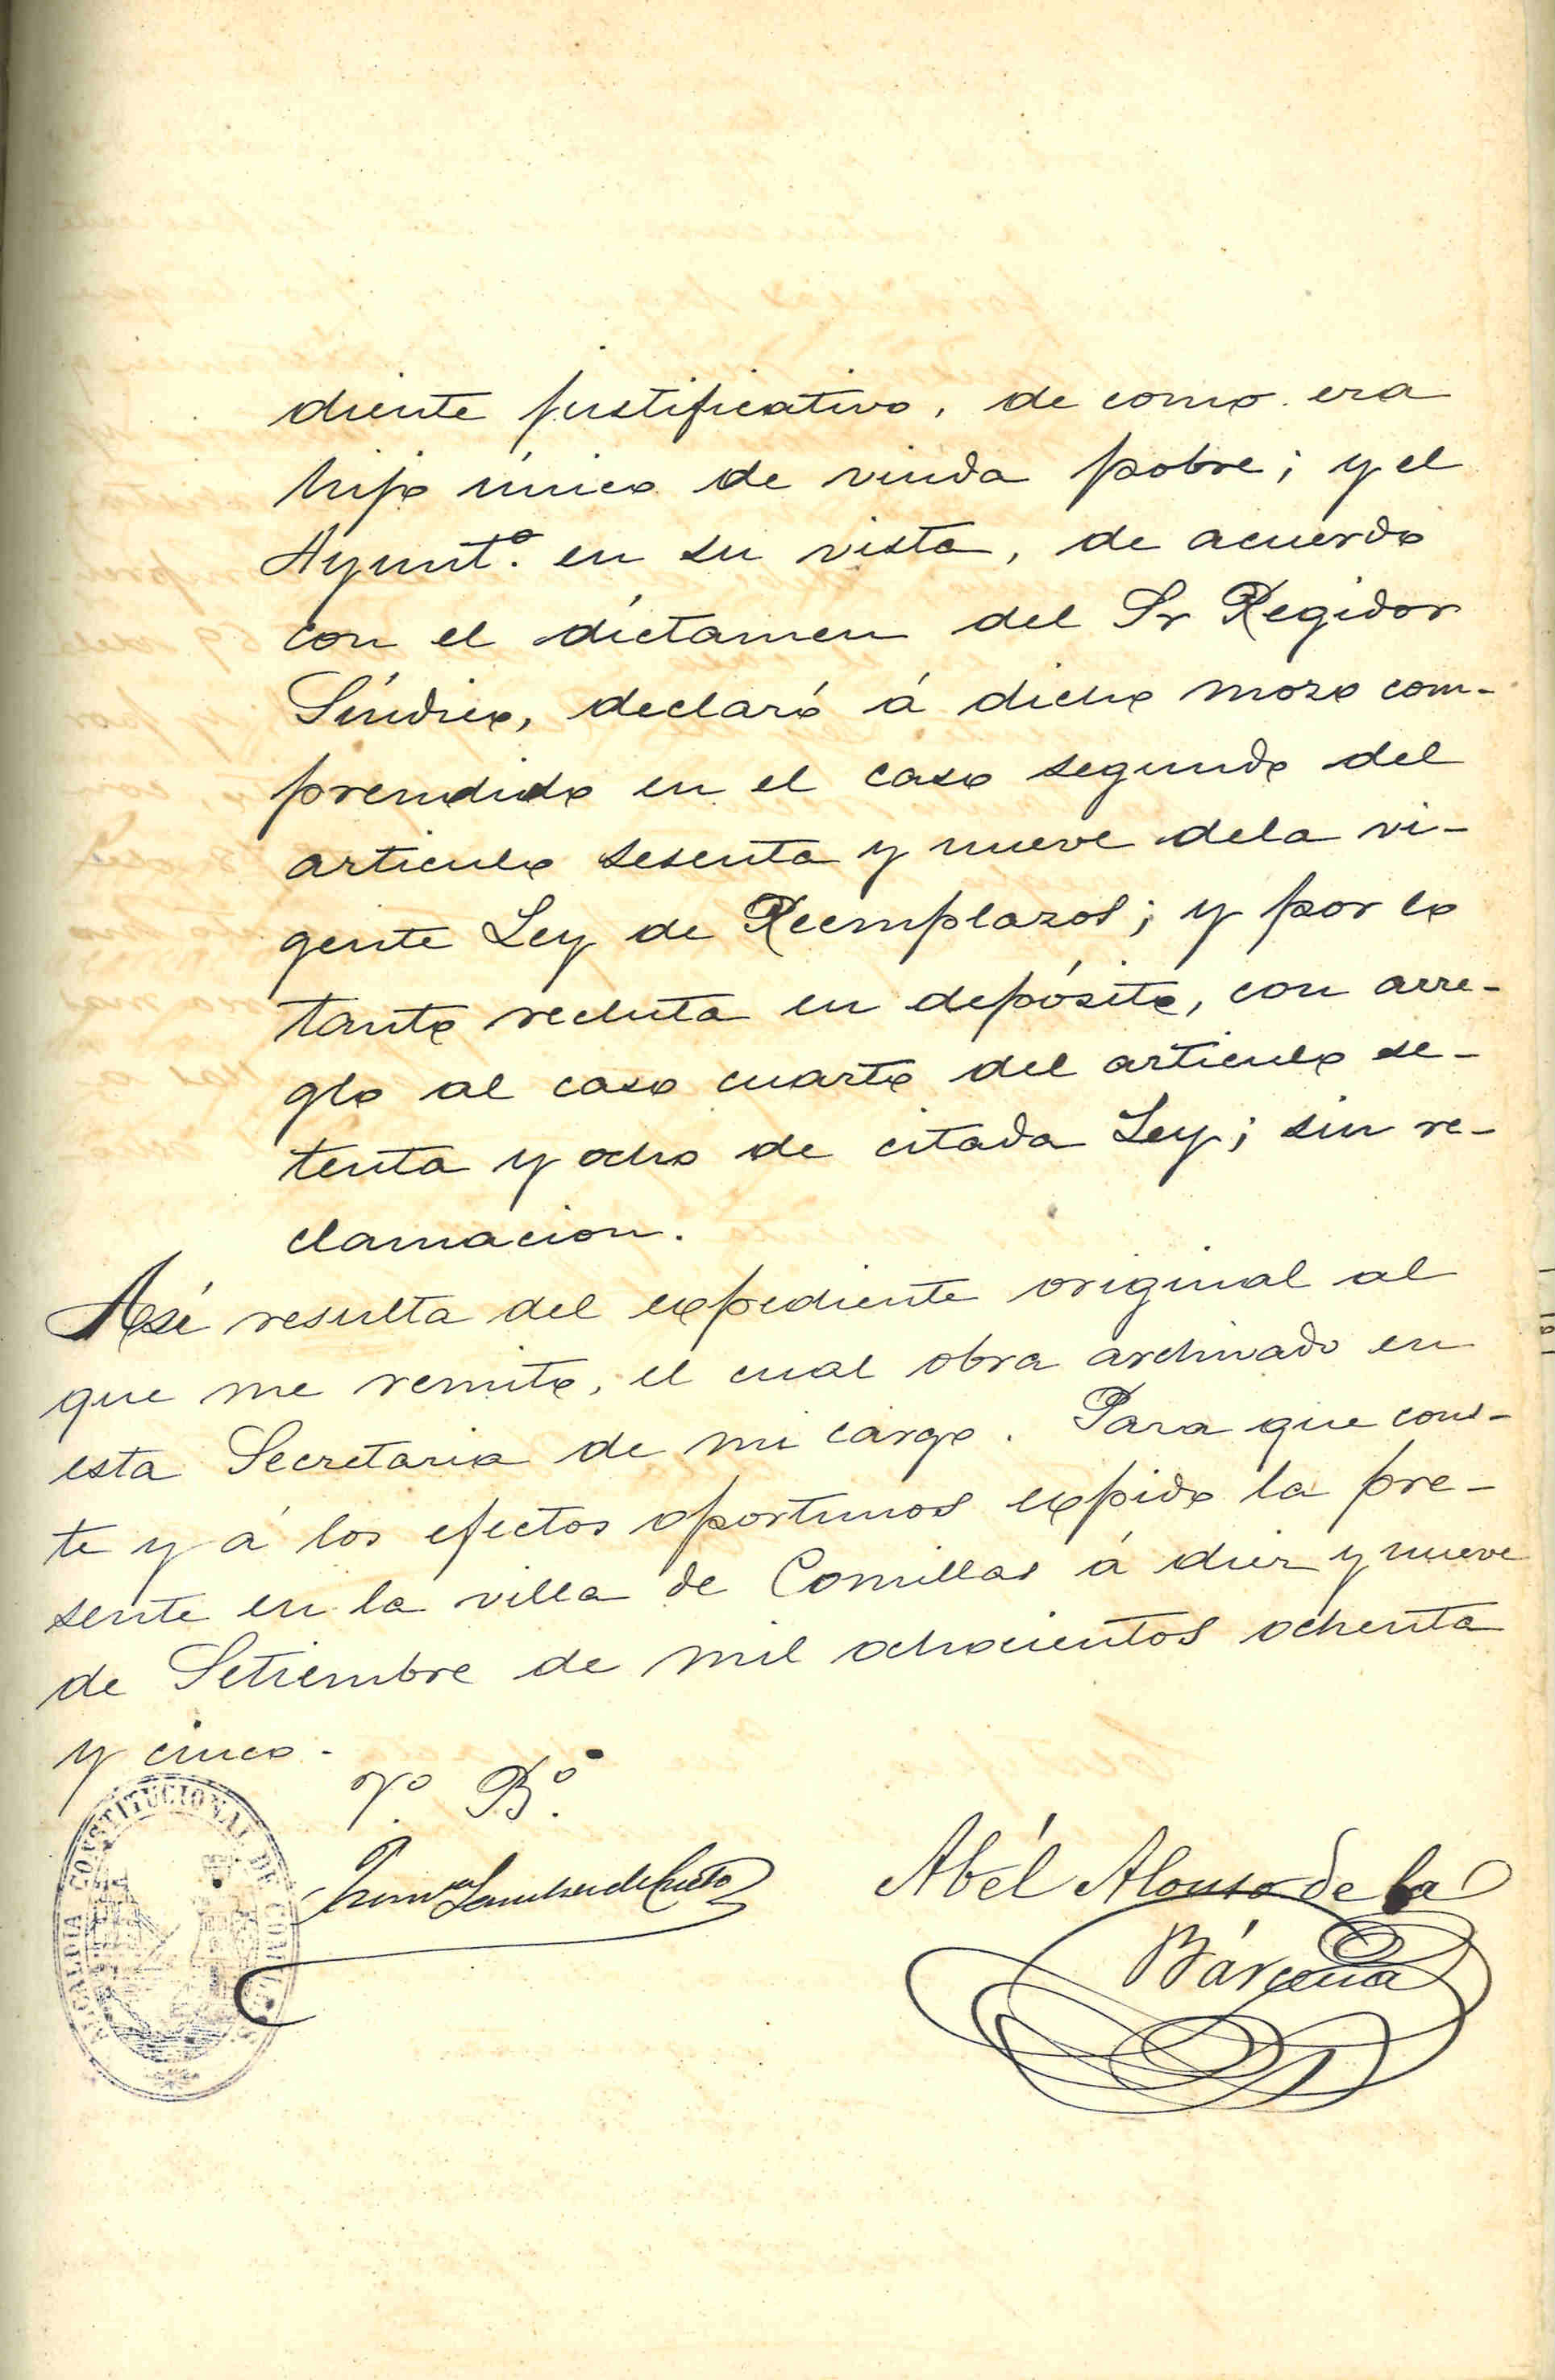 diente justificativo, de como era
hijo único de viuda pobre; y el
Ayuntº. en su vista, de acuerdo
con el dictamen del Sr Regidor
Síndico, declaró á dicho mozo com-
prendido en el caso segundo del
articulo sesenta y nueve dela vi-
gente Ley de Reemplazos; y por lo
tanto recluta en depósito, con arre-
glo al caso cuarto del articulo se-
tenta y ocho de citada Ley; sin re-
clamacion.
Asi resulta del expediente original al
que me remito, el cual obra archivado en
esta Secretaria de mi cargo. Para que cons-
te y á los efectos oportunos expido la pre-
sente en la villa de Comillas á diez y nueve
de Setiembre de mil ochocientos ochenta
y cinco.
Vº. Bº.
Sanchez de Cueto
Abél Alonso de la
Bárcena
ALCALDIA CONSTITUCIONAL DE COMILLAS